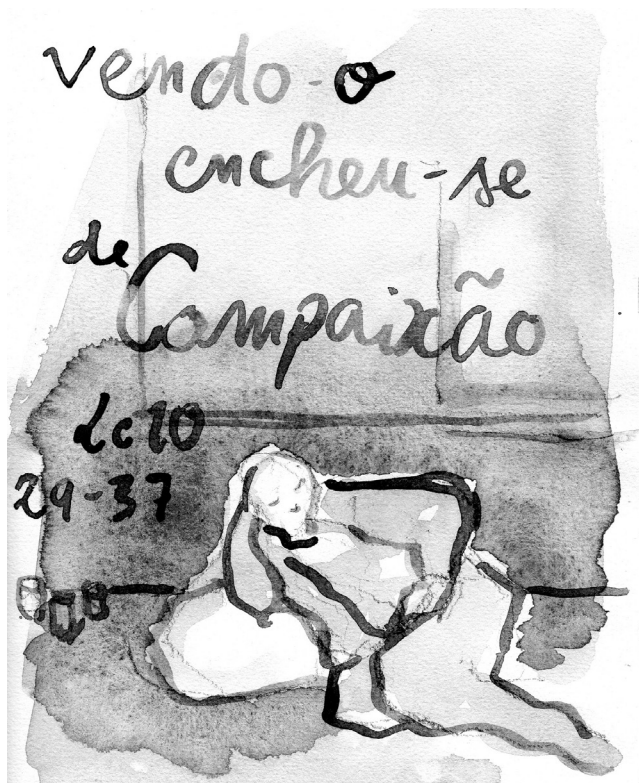 vendo-o
encheu-se
de
Compaixão
Lc 10
29-37